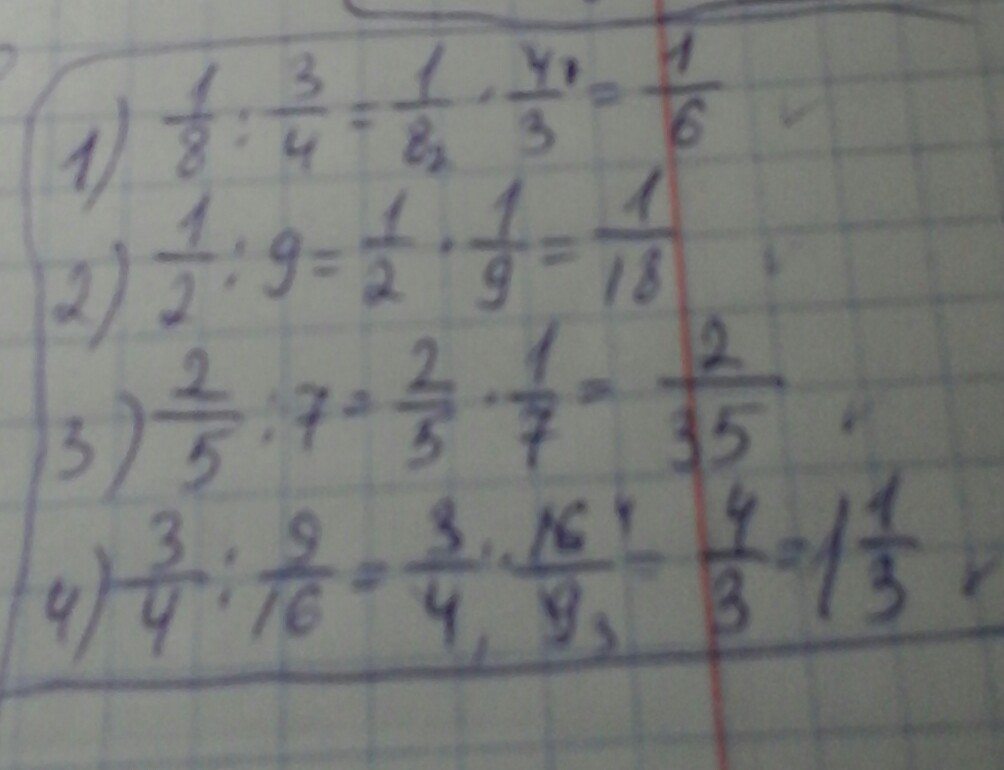 1) 1/8 : 3/4 = 1/8₂ · 4¹/3 = 1/6
2) 1/2 : 9 = 1/2 · 1/9 = 1/18
3) 2/5 : 7 = 2/5 · 1/7 = 2/35
4) 3/4 : 9/16 = 3/4₁ · 16⁴/9₃ = 4/3 = 1 1/3